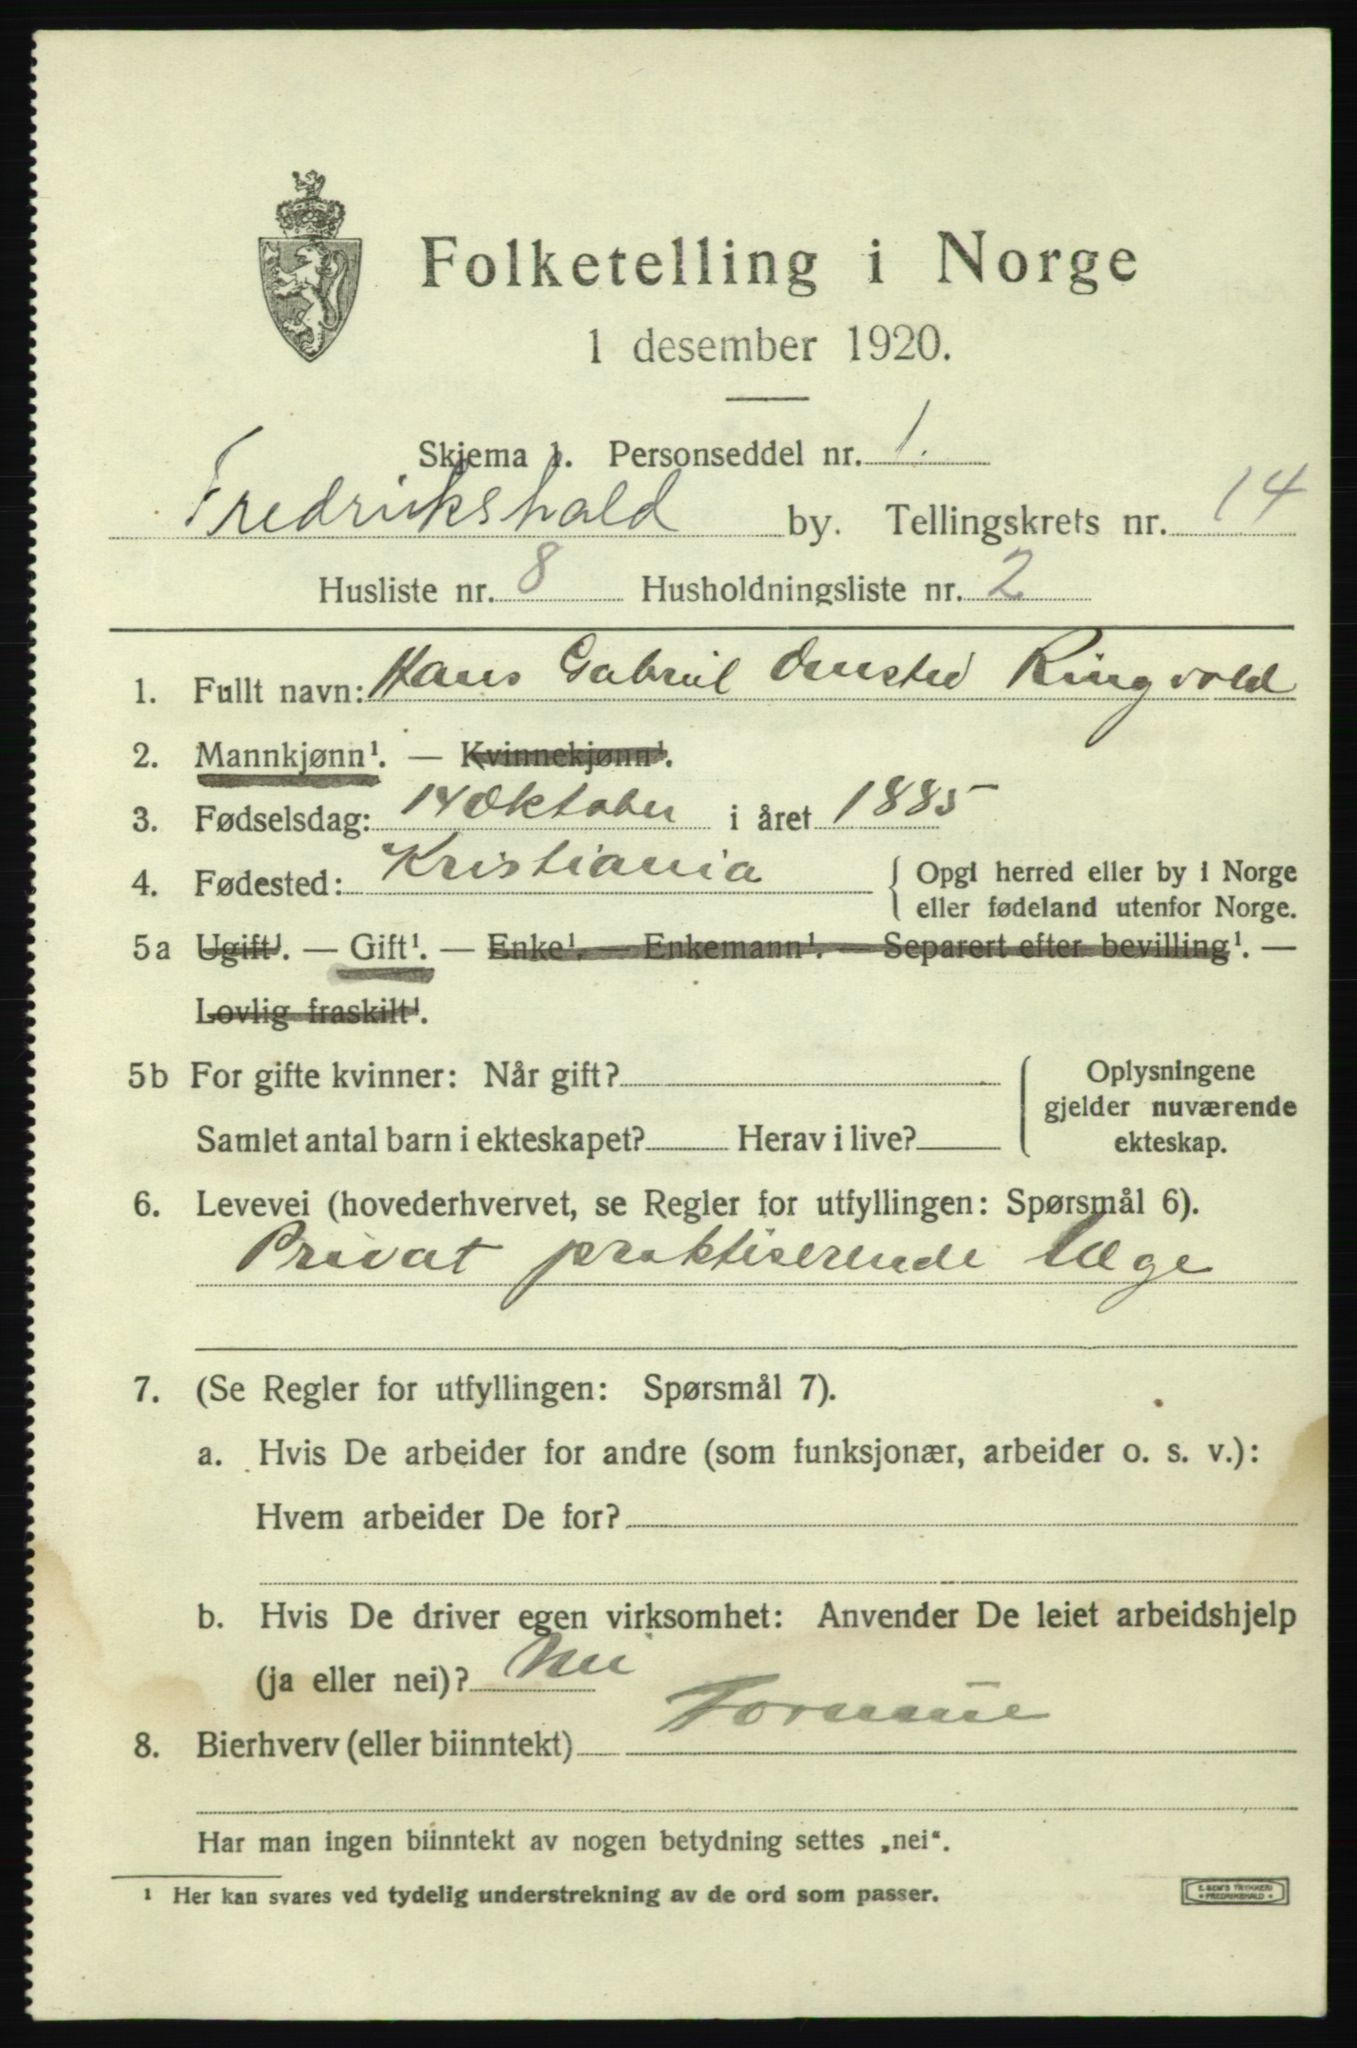 Folketelling i Norge
1 desember 1920.
Skjema 1. Personseddel nr. 1.
Fredrikshald by. Tellingskrets nr. 14
Husliste nr. 8 Husholdningsliste nr. 2
1. Fullt navn: Hans Gabriel Ringvold
2. Mannkjønn¹. — Kvinnekjønn¹.
3. Fødselsdag: 14 Oktober i året 1885
4. Fødested: Kristiania { Opgi herred eller by i Norge
eller fødeland utenfor Norge.
5a Ugift¹. — Gift¹. — Enke¹. — Enkemann¹. — Separert efter bevilling¹. —
Lovlig fraskilt¹.
5b For gifte kvinner: Når gift? { Oplysningene
gjelder nuværende
Samlet antal barn i ekteskapet? Herav i live? ekteskap.
6. Levevei (hovederhvervet, se Regler for utfyllingen: Spørsmål 6).
Privat praktiserende læge
7. (Se Regler for utfyllingen: Spørsmål 7).
a. Hvis De arbeider for andre (som funksjonær, arbeider o. s. v.):
Hvem arbeider De for?
b. Hvis De driver egen virksomhet: Anvender De leiet arbeidshjelp
(ja eller nei)? Nei
8. Bierhverv (eller biinntekt) Formue
Har man ingen biinntekt av nogen betydning settes „nei“.
¹ Her kan svares ved tydelig understrekning av de ord som passer.
E. SEM'S TRYKKERI
• FREDRIKSHALD •